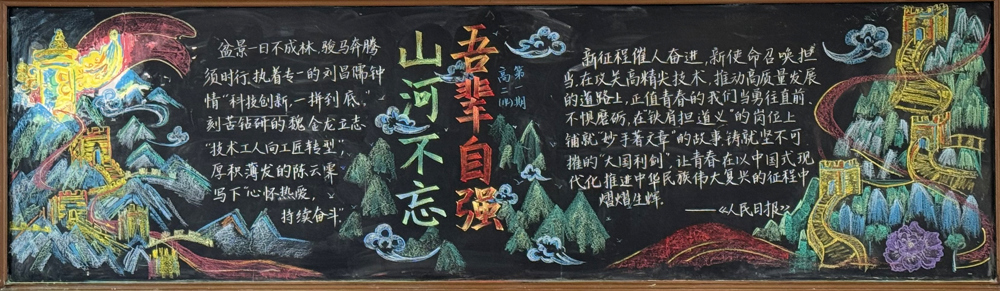 盆景一日不成林,骏马奔腾
须时行.执着专一的刘昌儒钟
情“科技创新,一拼到底,”
刻苦钻研的魏金龙立志
“技术工人向工匠转型”,
厚积薄发的陈云霁
写下“心怀热爱,
持续奋斗”
吾辈自强
山河不忘
第一期
高二
新征程催人奋进,新使命召唤担
当,在攻关高精尖技术、推动高质量发展
的道路上,正值青春的我们当勇往直前、
不惧磨砺,在“铁肩担道义”的岗位上
铺就“妙手著文章”的故事,铸就坚不可
摧的“大国利剑”,让青春在以中国式现
代化推进中华民族伟大复兴的征程中
熠熠生辉.
——《人民日报》